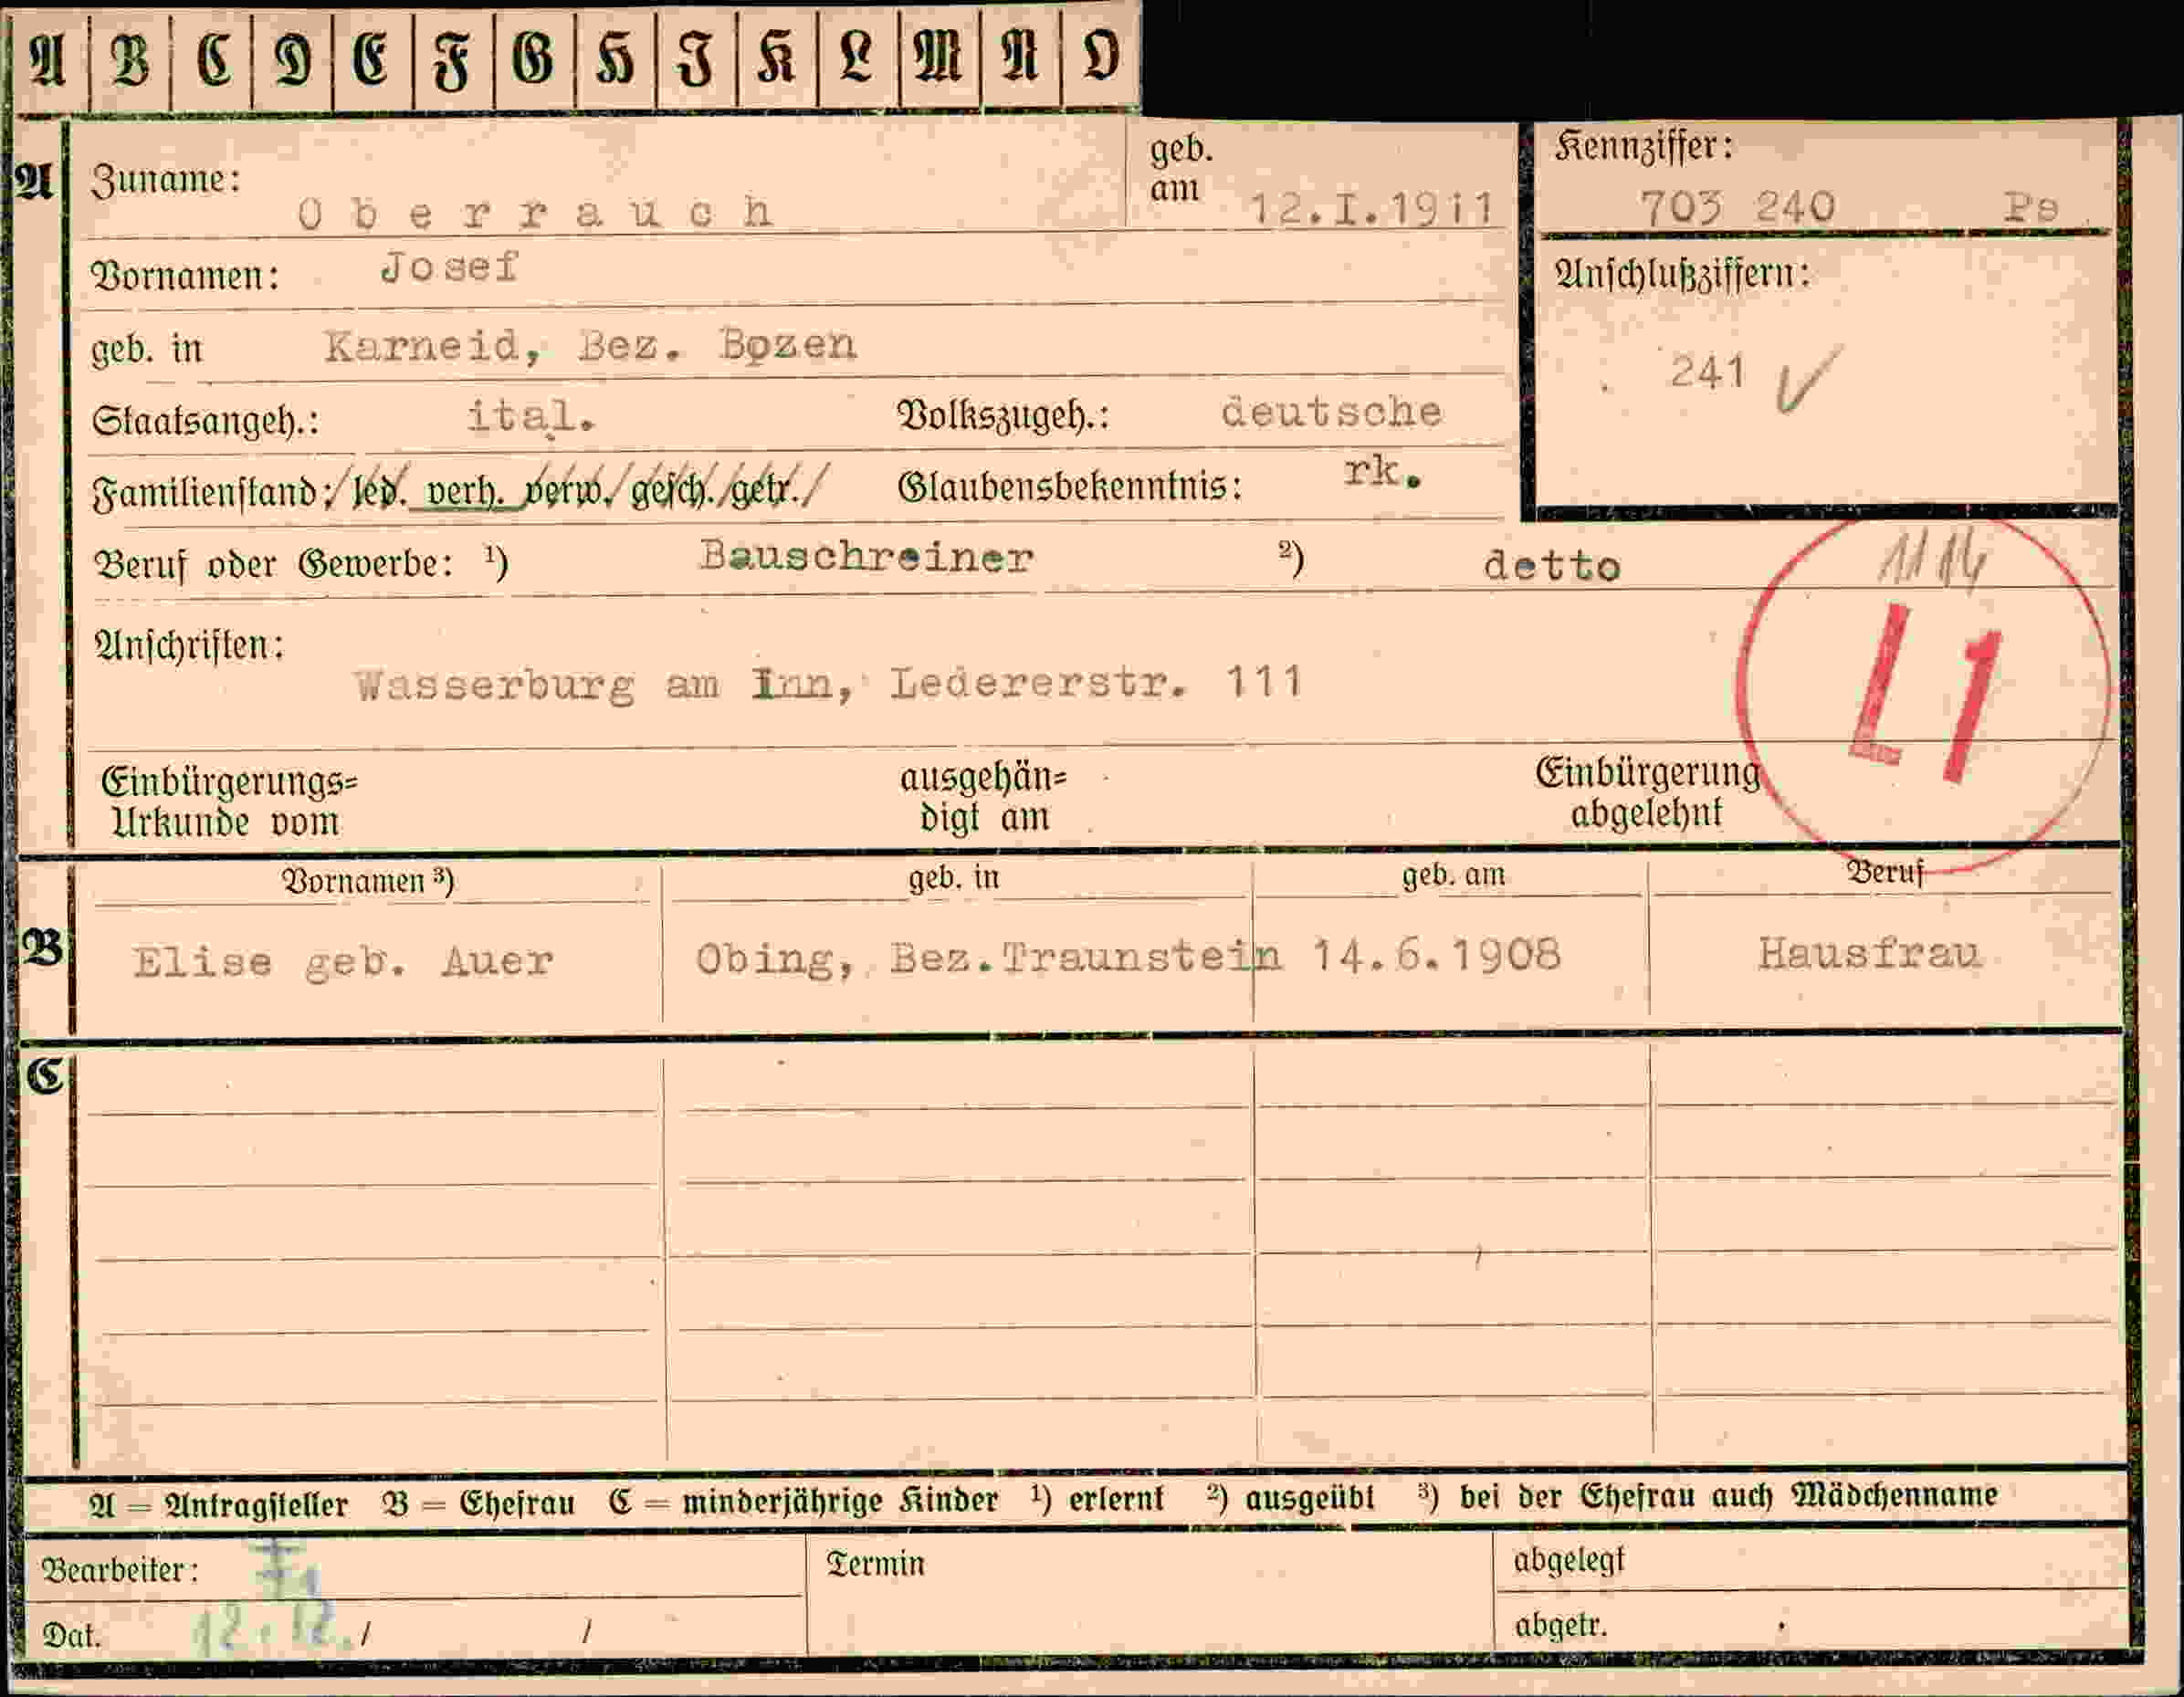 A B C D E F G H J K L M N O
A Zuname: Oberrauch geb. am 12.I.1911 Kennziffer: 703 240 Ps
Vornamen: Josef Anschlußziffern:
geb. in Karneid, Bez. Bozen 241
Staatsangeh.: ital. Volkszugeh.: deutsche
Familienstand: led. verh. verw. gesch. getr. Glaubensbekenntnis: rk.
Beruf oder Gewerbe: ¹) Bauschreiner ²) detto
Anschriften: L1
Wasserburg am Inn, Ledererstr. 111
Einbürgerungs= ausgehän= Einbürgerung
Urkunde vom digt am abgelehnt
Vornamen ³) geb. in geb. am Beruf
B Elise geb. Auer Obing, Bez.Traunstein 14.6.1908 Hausfrau
C
A = Antragsteller B = Ehefrau C = minderjährige Kinder ¹) erlernt ²) ausgeübt ³) bei der Ehefrau auch Mädchenname
Bearbeiter: Termin abgelegt
Dat. 12.12. / / abgetr.